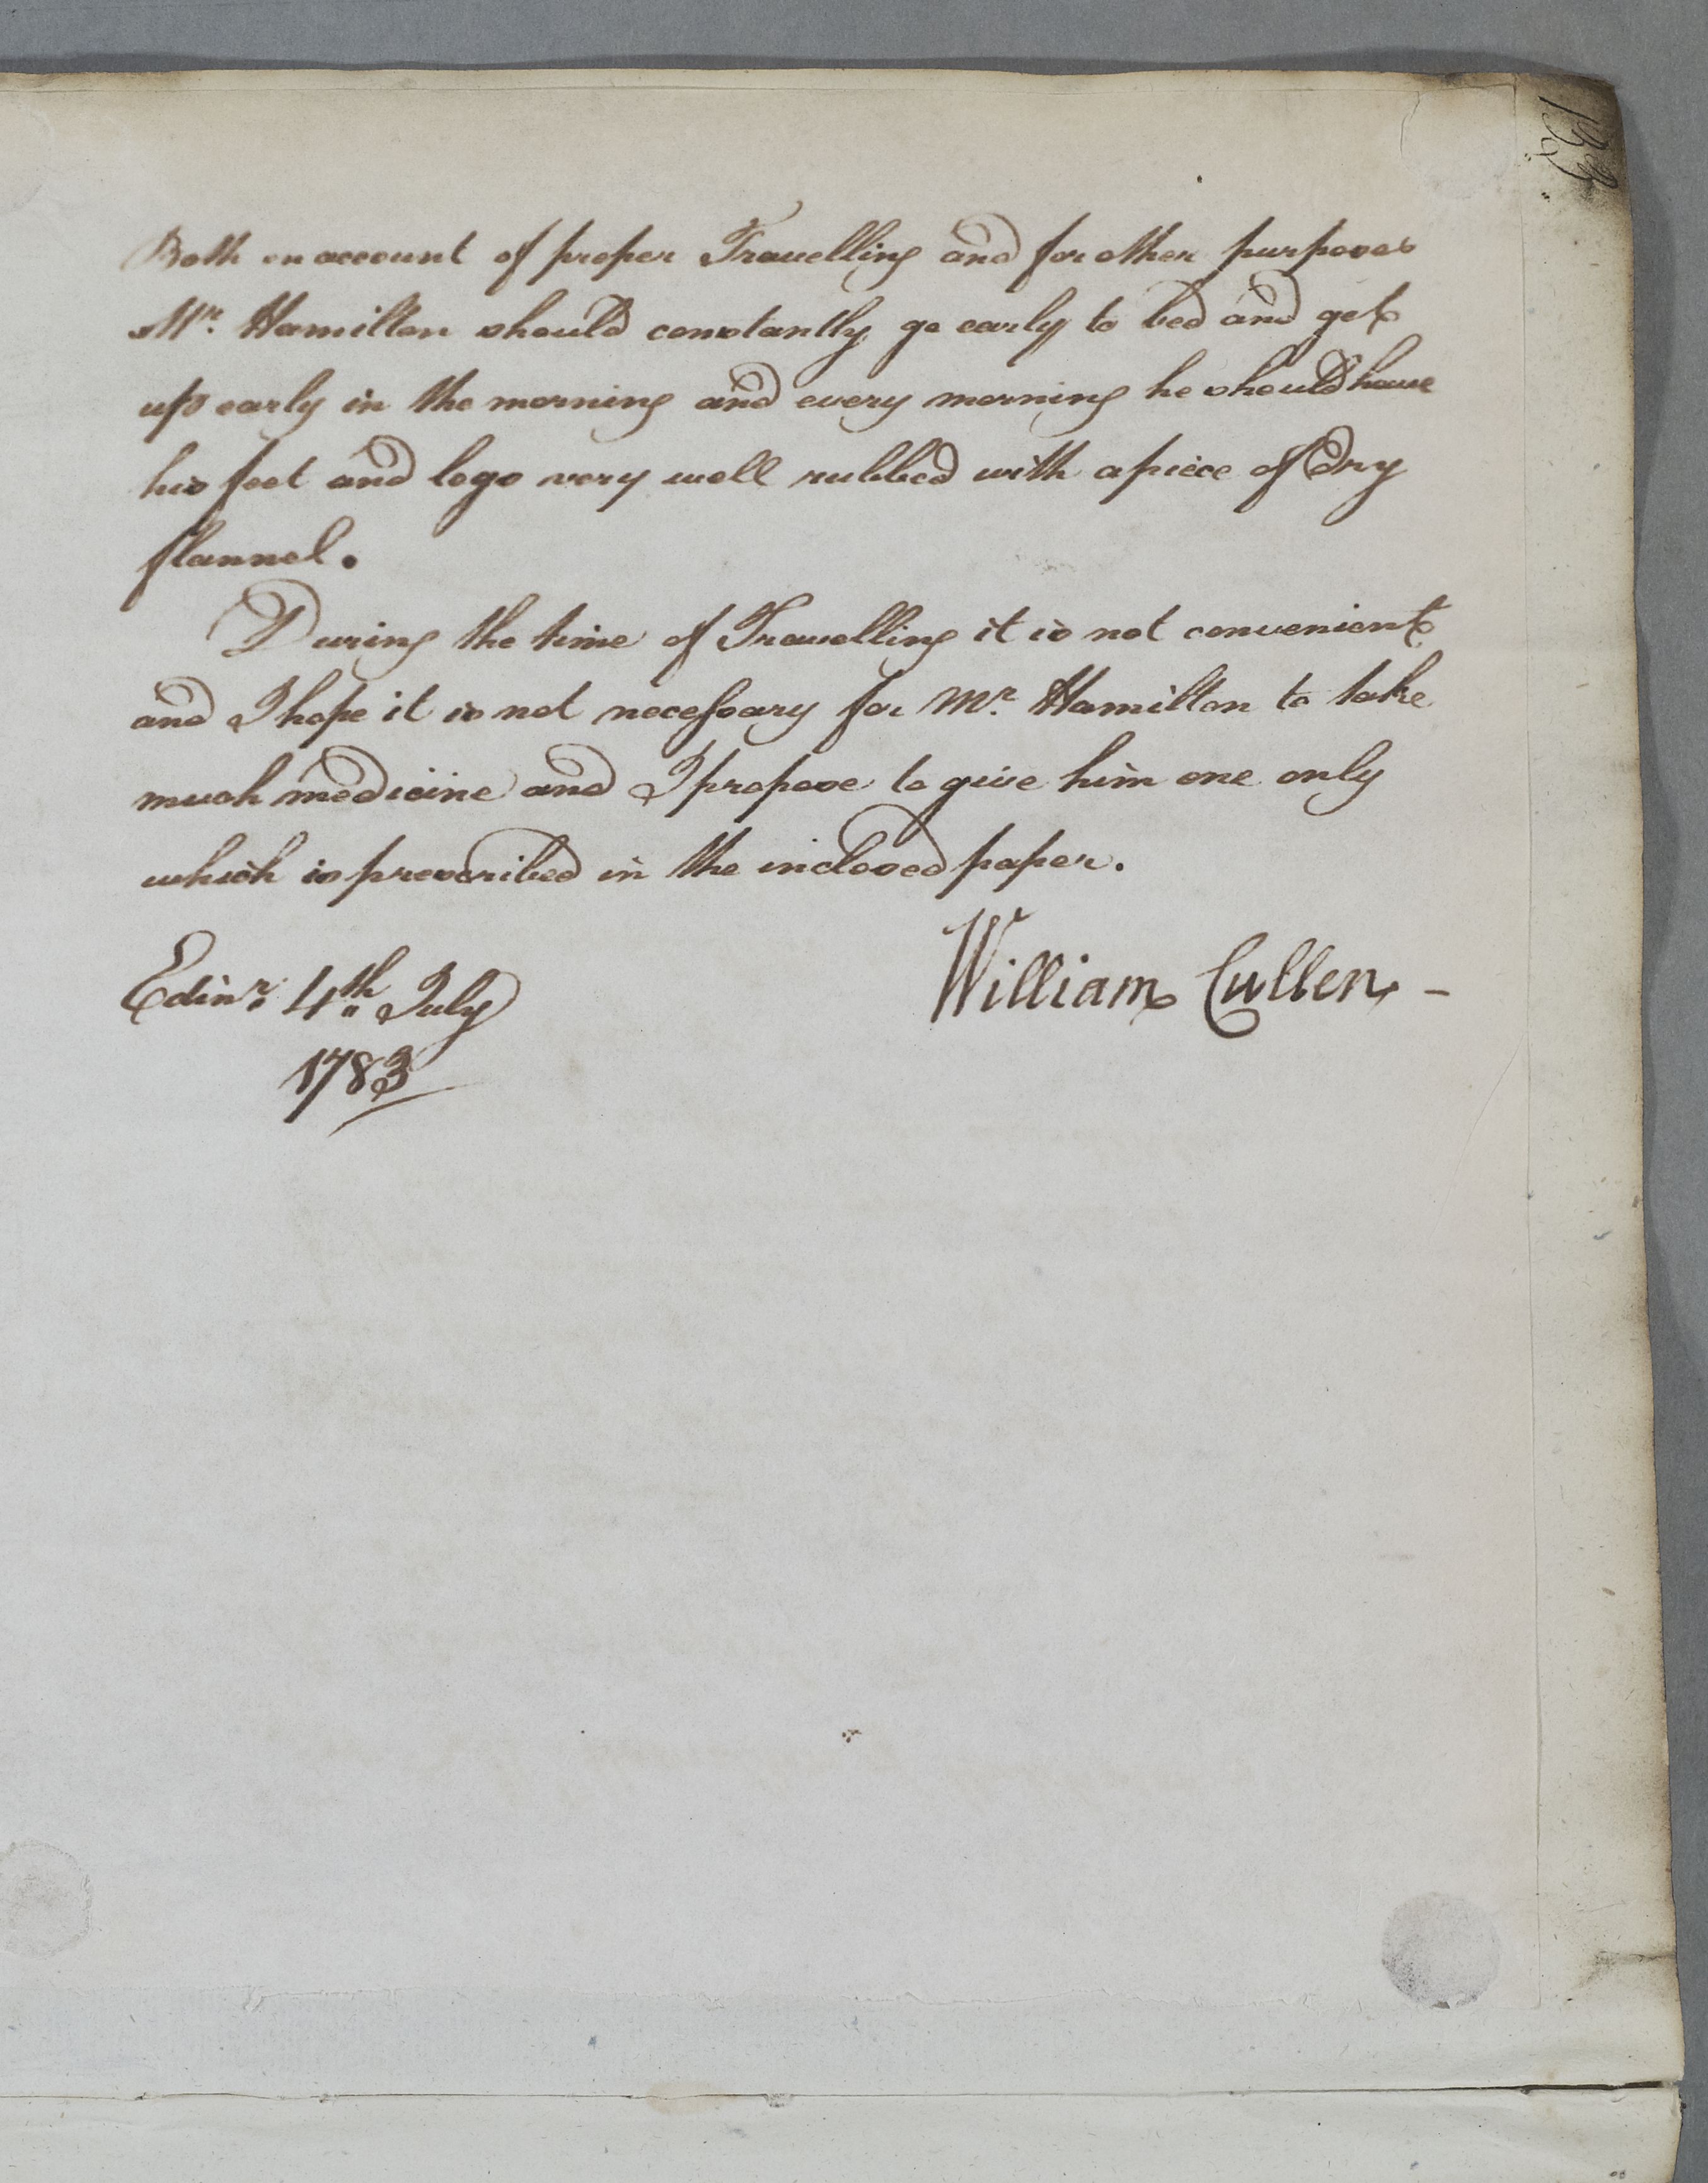 Both on account of proper Travelling and for other purposes
Mr. Hamilton should constantly go early to bed and get
up early in the morning and every morning he should have
his feet and legs very well rubbed with a piece of dry
flannel.
During the time of Travelling it is not convenient
and I hope it is not necessary for Mr. Hamilton to take
much medicine and I propose to give him one only
which is prescribed in the inclosed paper.
William Cullen -
Edinr. 4th July
1783